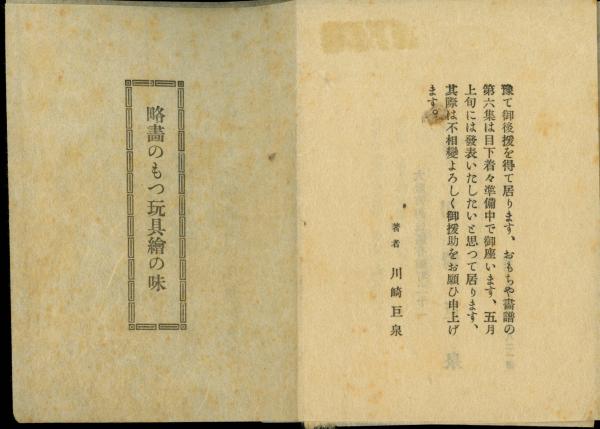 豫て御後援を得て居ります、おもちや畵譜の
第六集は目下着々準備中で御座います、五月
上旬には發表いたしたいと思つて居ります、
其際は不相變よろしく御援助をお願ひ申上げ
ます。
著者 川崎巨泉
略畵のもつ玩具繪の味